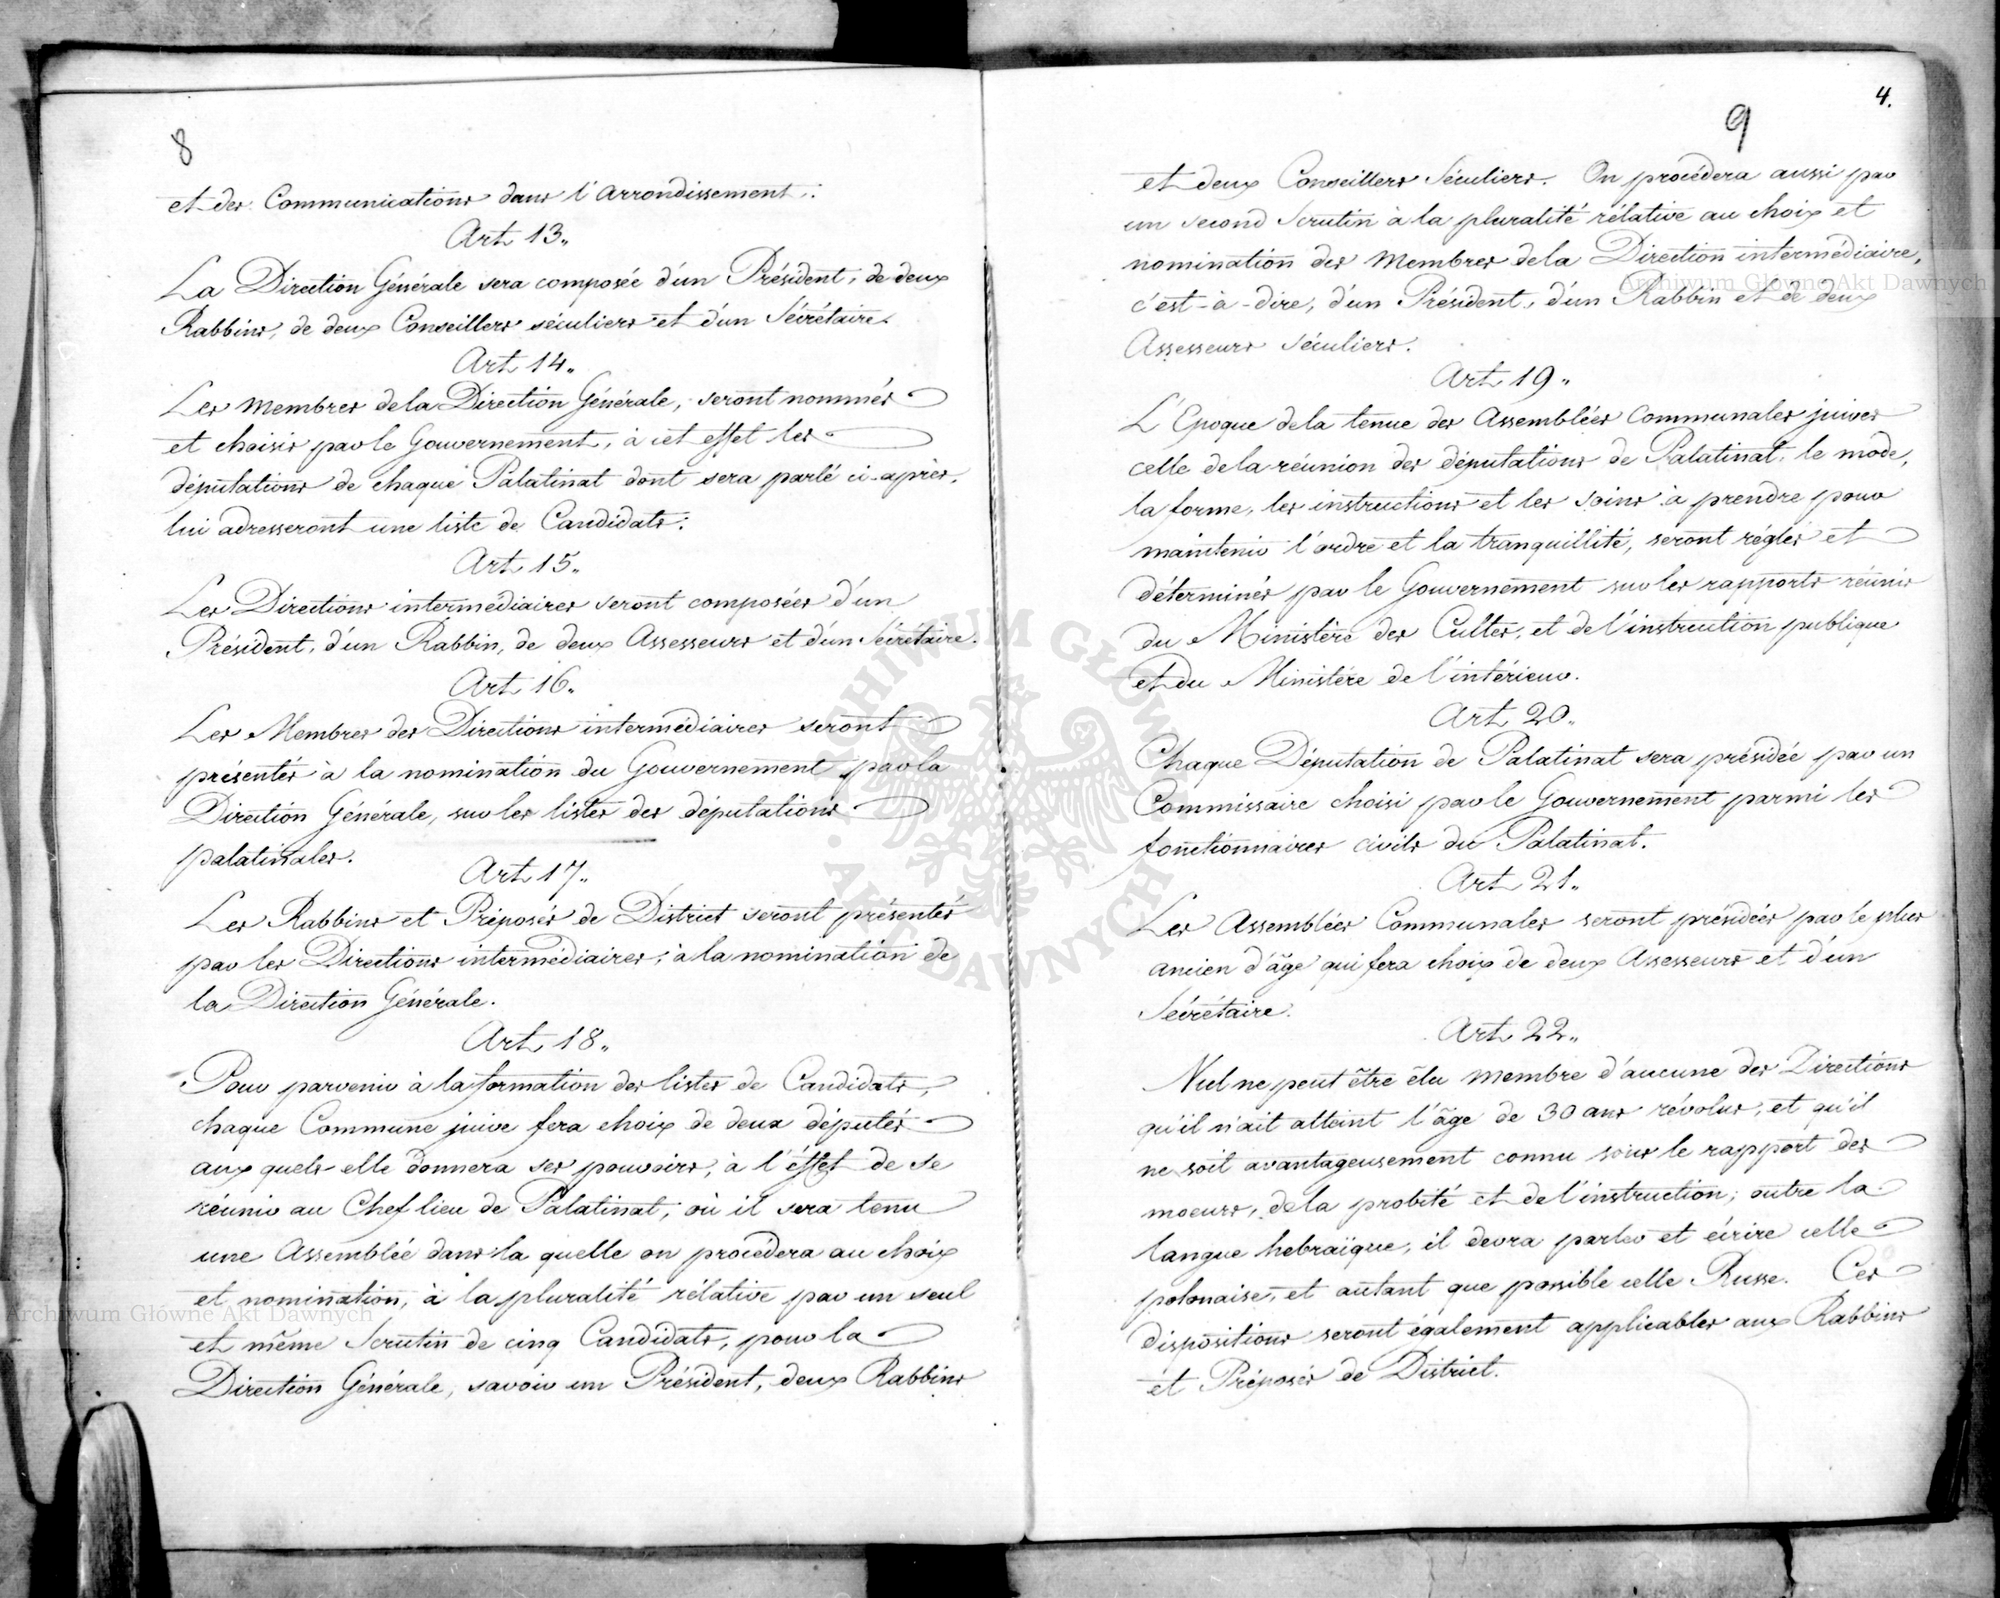 8
et des Communications dans l'arrondissement.
Art 13.
La Direction Générale sera composée d'un Président, de deux
Rabbins, de deux Conseillers séculiers et d'un Sécrétaire.
Art 14.
Les membres de la Direction Générale, seront nommés
et choisis par le Gouvernement, à cet effet les
députations de chaque Palatinat dont sera parlé ci-après,
lui adresseront une liste de Candidats.
Art 15.
Les Directions intermédiaires seront composées d'un
Président, d'un Rabbin, de deux Assesseurs et d'un Sécrétaire.
Art 16.
Les Membres des Directions intermédiaires seront
présentés à la nomination du Gouvernement par la
Direction Générale, sur les listes des députations
palatinales.
Art 17.
Les Rabbins et Préposés de District seront présentés
par les Directions intermédiaires, à la nomination de
la Direction Générale.
Art 18.
Pour parvenir à la formation des listes de Candidats,
chaque Commune juive fera choix de deux députés
aux quels elle donnera ses pouvoirs, à l'éffet de se
réunir au Chef lieu de Palatinat, où il sera tenu
une Assemblée dans la quelle on procédera au choix
et nomination, à la pluralité rélative par un seul
et même Scrutin de cinq Candidats, pour la
Direction Générale, savoir un Président, deux Rabbins
4.
9
et deux Conseillers Séculiers. On procédera aussi par
un second Scrutin à la pluralité rélative au choix et
nomination des membres de la Direction intermédiaire,
c'est-à-dire, d'un Président, d'un Rabbin et de deux
Assesseurs Séculiers.
Art 19.
L'Epoque de la tenue des Assemblées Communales juives
celle de la réunion des députations de Palatinat, le mode,
la forme, les instructions et les soins à prendre pour
maintenir l'ordre et la tranquillité, seront réglés et
déterminés par le Gouvernement sur les rapports réunis
du Ministère des Cultes, et de l'instruction publique
et du Ministère de l'intérieur.
Art 20.
Chaque Députation de Palatinat sera présidée par un
Commissaire choisi par le Gouvernement parmi les
fonctionnaires civils du Palatinat.
Art 21.
Les Assemblées Communales seront présidées par le plus
ancien d'âge qui fera choix de deux Assesseurs et d'un
Sécrétaire.
Art 22.
Nul ne peut être élu membre d'aucune des Directions
qu'il n'ait atteint l'âge de 30 ans révolus, et qu'il
ne soit avantageusement connu sous le rapport des
moeurs, de la probité et de l'instruction; outre la
langue hebraïque, il devra parler et écrire celle
polonaise, et autant que possible celle Russe. Ces
dispositions seront également applicables aux Rabbins
et Préposés de District.
Archiwum Główne Akt Dawnych
Archiwum Główne Akt Dawnych
ARCHIWUM GŁÓWNE AKT DAWNYCH